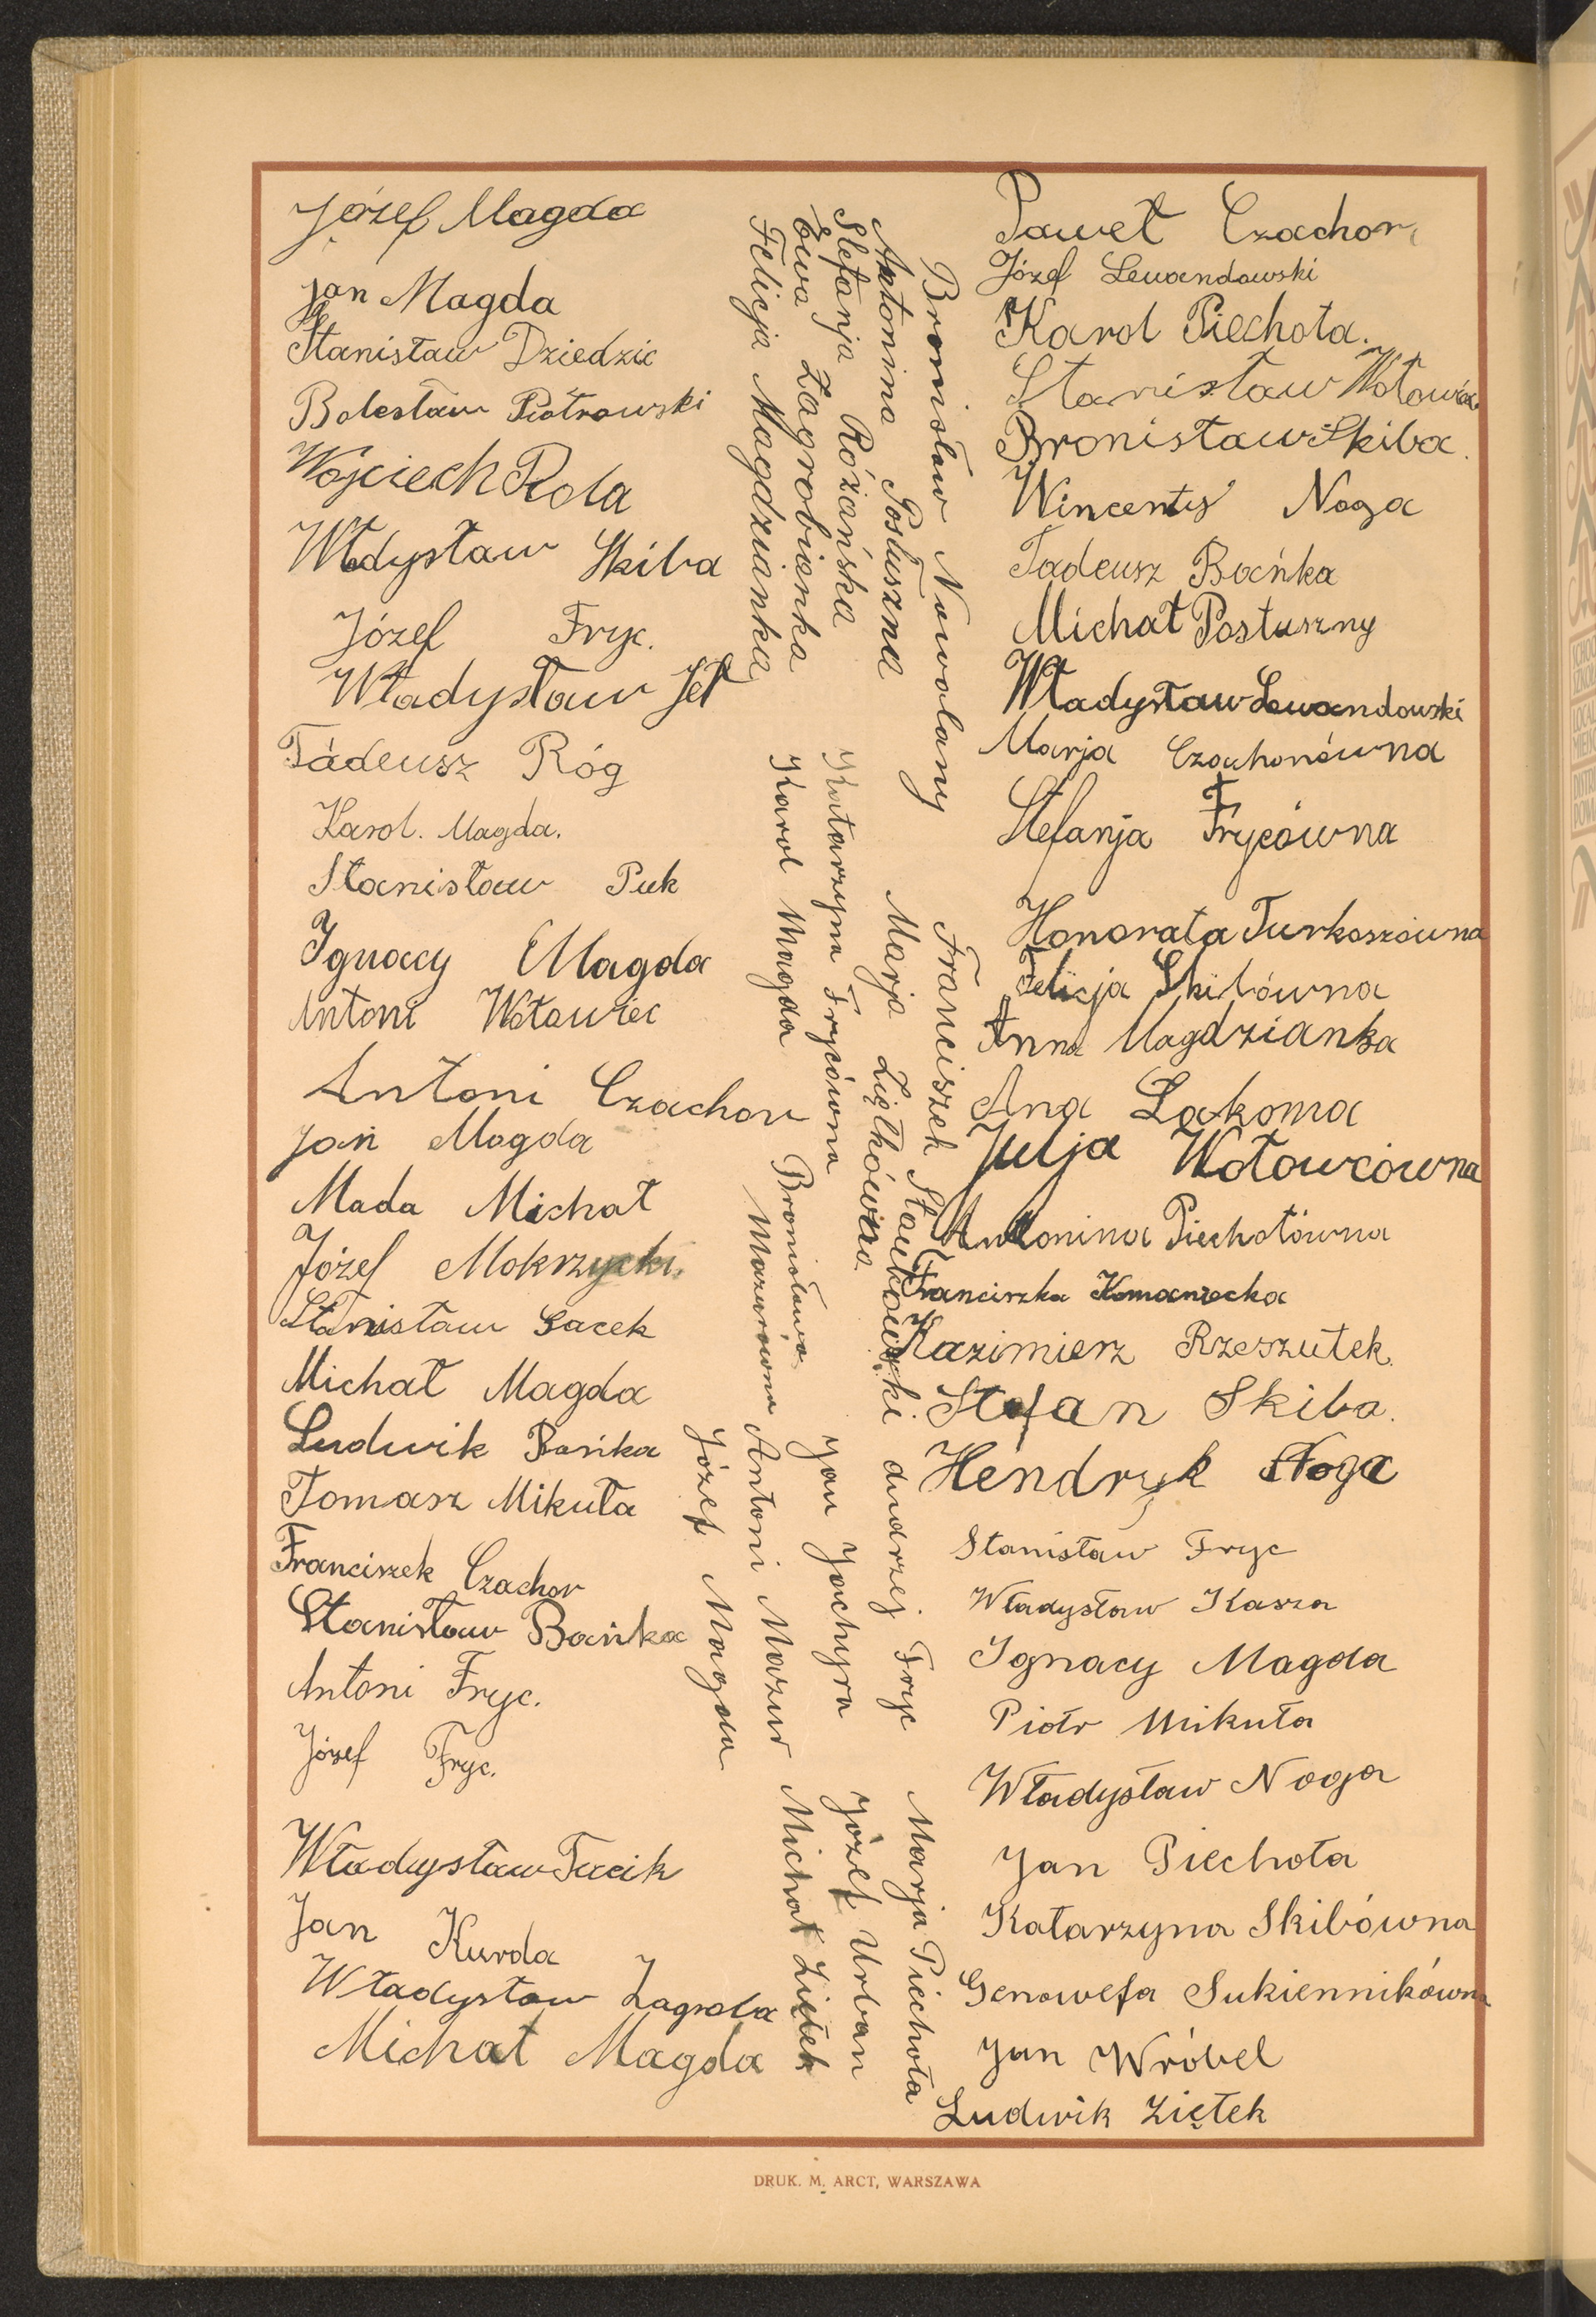 Józef Magda
Jan Magda
Stanisław Dziedzic
Bolesław Piotrowski
Wojciech Rola
Władysław Skiba
Józef Fryc.
Władysław Jeł
Tadeusz Róg
Karol. Magda.
Stanisław Puk
Ignacy Magda
Antoni Wotowiec
Antoni Czachor
Jan Magda
Mada Michał
Józef Mokrzycki.
Stanisław Gacek
Michał Magda
Ludwik Bańka
Tomasz Mikuła
Franciszek Czachor
Stanisław Bańka
Antoni Fryc.
Józef Fryc.
Władysław Tacik
Jan Kurda
Władysław Zagroba
Michał Magda
Bronisław Nowolany
Antonina Posłuszna
Stefanja Różańska
Ewa Zagrobianka
Felicja Magdzianka
Franciszek Słaukowski
Marja Ziętkówna
Katarzyna Frycówna
Karol Magda
Bronisława
Mazurówna
Andrzej Fryc
Jan Jachyra
Antoni Mazur
Józef Magda
Marja Piechota
Józef Urban
Michał Ziętek
Paweł Czachor
Józef Lewandowski
Karol Piechota.
Stanisław
Bronisław Skiba.
Wincenty Noga
Tadeusz Bańka
Michał Posłuszny
Władysław Lewandowski
Marja Czachorówna
Stefanja Frycówna
Honorata Turkoszówna
Felicja Skibówna
Anna Magdzianka
Ana Łakoma
Julja Wotowcówna
Antonina Piechotówna
Franciszka Komaniecka
Kazimierz Rzeszutek.
Stefan Skiba.
Hendryk Noga
Stanisław Fryc
Władysław Kasza
Ignacy Magda
Piotr Mikuła
Władysław Noga
Jan Piechota
Katarzyna Skibówna
Genowefa Sukiennikówna
Jan Wróbel
Ludwik Ziętek
DRUK. M. ARCT, WARSZAWA